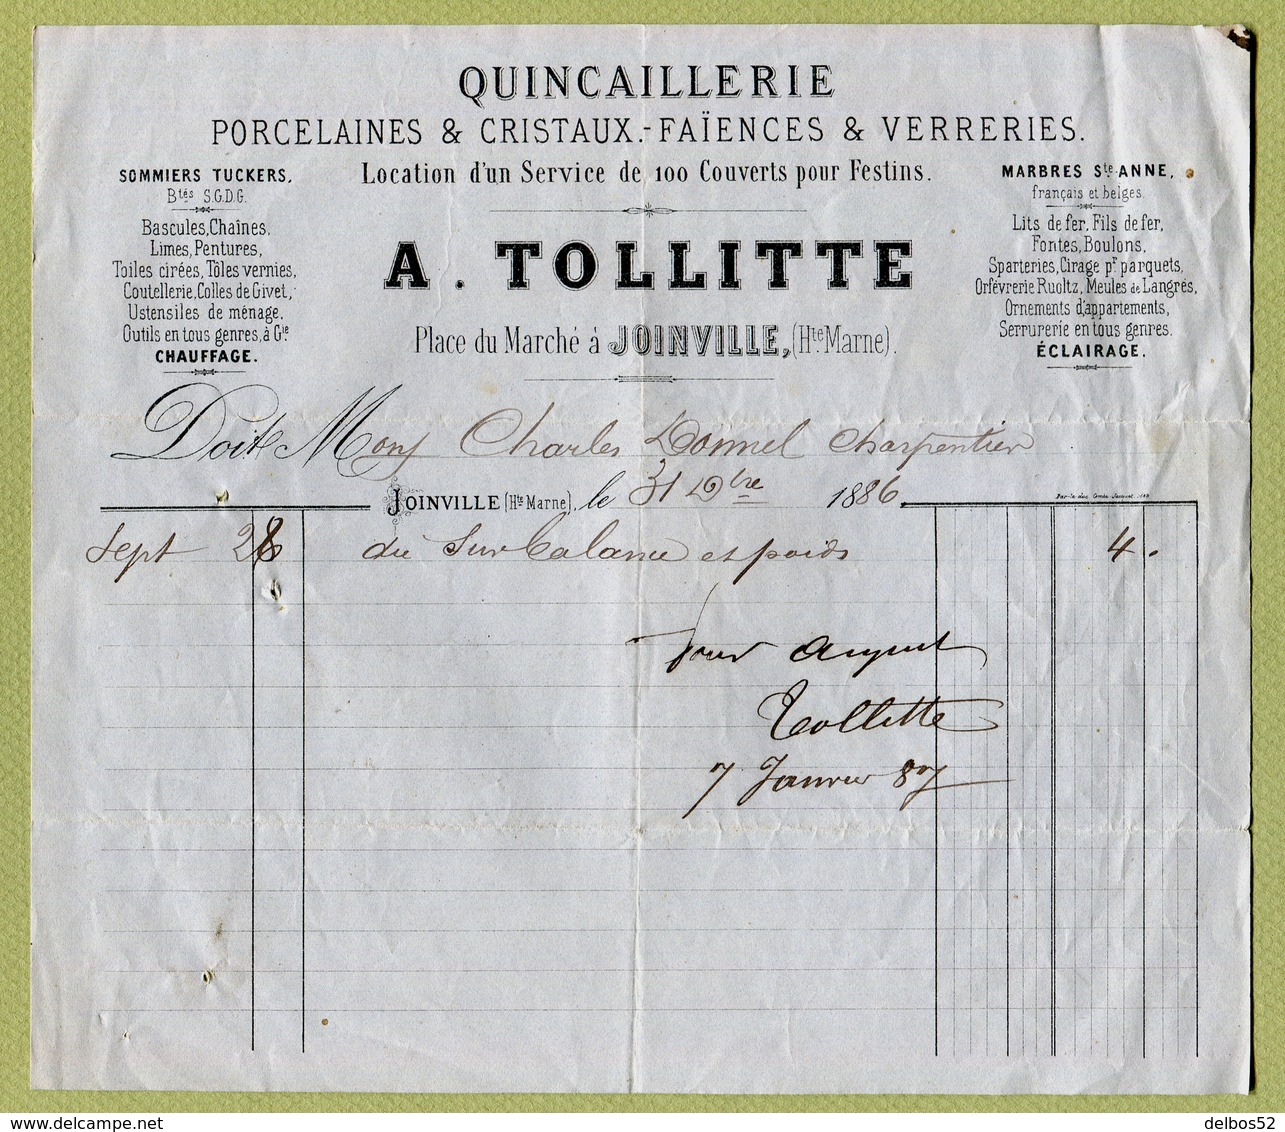 QUINCAILLERIE
PORCELAINES & CRISTAUX.-FAÏENCES & VERRERIES.
Location d'un Service de 100 Couverts pour Festins.
SOMMIERS TUCKERS,
Btés S.G.D.G.
Bascules, Chaînes,
Limes, Pentures,
Toiles cirées, Tôles vernies,
Coutellerie, Colles de Givet,
Ustensiles de ménage,
Outils en tous genres, à Gie
CHAUFFAGE.
A. TOLLITTE
Place du Marché à JOINVILLE, (Hte Marne).
MARBRES Ste ANNE,
français et belges
Lits de fer, Fils de fer,
Fontes, Boulons,
Sparteries, Cirage pr parquets,
Orfévrerie Ruoltz, Meules de Langres,
Ornements d'appartements,
Serrurerie en tous genres.
ÉCLAIRAGE.
Doit Mons Charles charpentier
JOINVILLE (Hte Marne), le 31 Xbre 1886.
Sept 28 du sur balance et poids 4.
Pour acquit
Tollitte
7 Janvier 87
delbos52